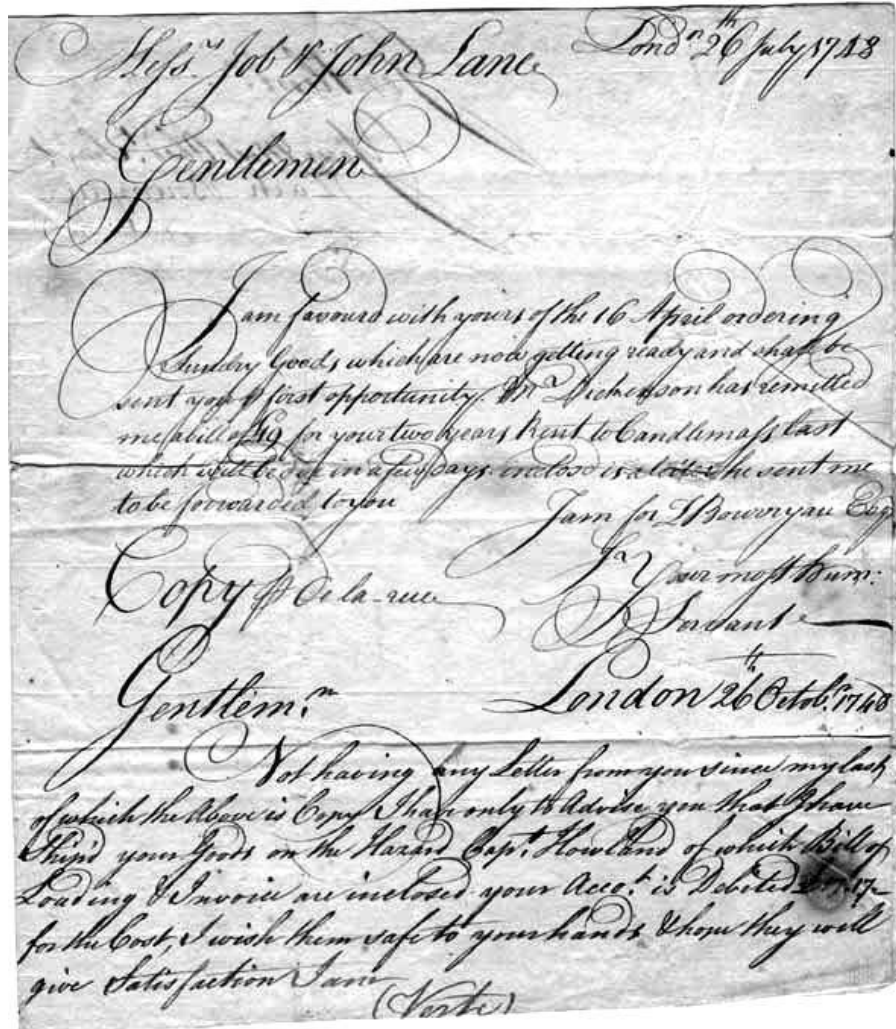 Londn 26th July 1748
Messrs Job & John Lane
Gentlemen
I am favourd with yours of the 16 April ordering
Sundry Goods which are now getting ready and shall be
sent you first opportunity. Mr Dickenson has remitted
me a bill of £19 for your two years Rent to Candlemass last
which will be due in a few days. inclosd is a letter he sent me
to be forwarded to you
I am for L Bourryau Esqr
Your most hum:
Servant
Copy de la-rue
Gentlem.n
London 26th Octob.r 1748
Not having any Letter from you since my last,
of which the Above is Copy I have only to Advise you that I have
Ship'd your Goods on the Hazard Capt. Howland of which Bill of
Loading & Invoice are inclosed your Acco.t is Debited
for the Cost, I wish them safe to your hands & hope they will
give Satisfaction I am
(Verte)